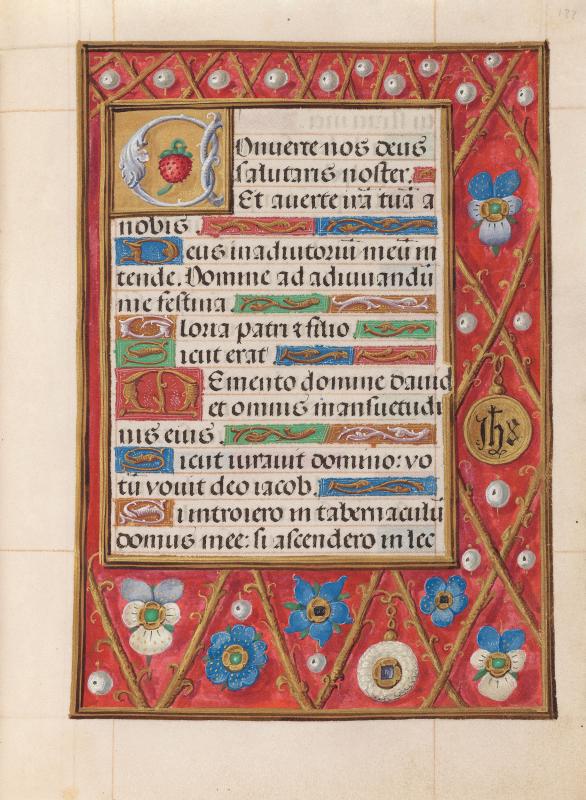 Onuerte nos deus
salutaris noster.
Et auerte irā tuā a
nobis.
Deus in adiutoriū meū in
tende. Domine ad adiuuandū
me festina
Gloria patri ⁊ filio.
Sicut erat
Memento domine dauid
et omnis mansuetudi
nis eius.
Sicut iurauit domino: vo
tū vouit deo iacob.
Si introiero in tabernaculū
domus mee: si ascendero in lec
ihs